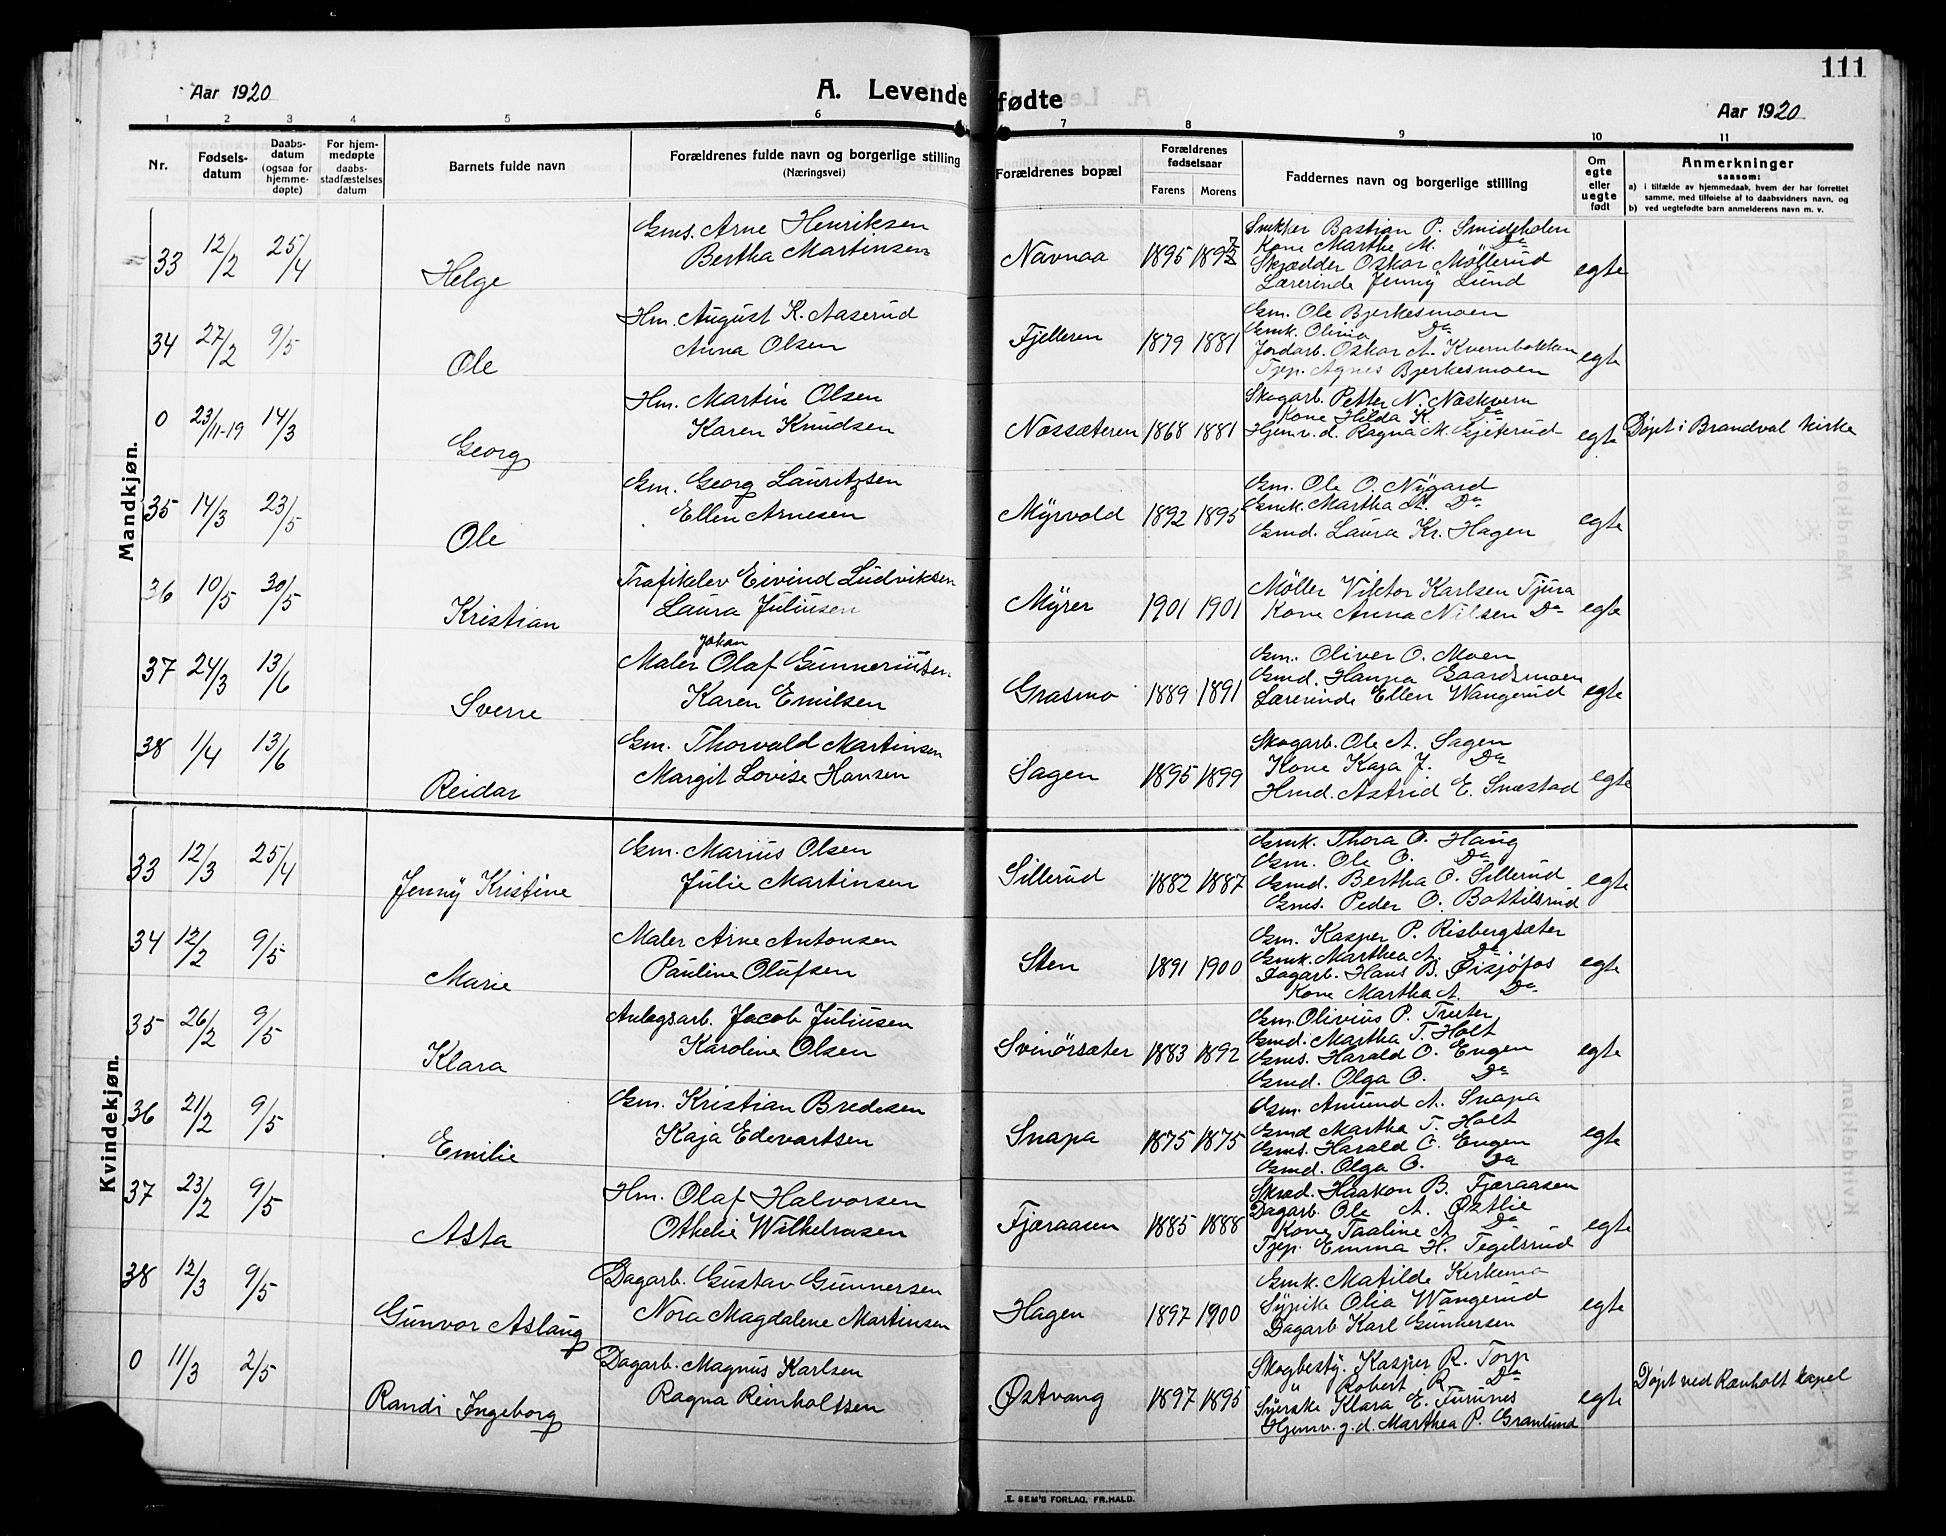 111
Aar 1920
A. Levende fødte
Aar 1920
1 2 3 4 5 6 7 8 9 10 11
Nr.
Fødsels-
datum
Daabs-
datum
(ogsaa for
hjemme-
døpte)
For hjem-
medøpte
daabs-
stadfæstelses
datum
Barnets fulde navn
Forældrenes fulde navn og borgerlige stilling
(Næringsvei)
Forældrenes bopæl
Forældrenes
fødselsaar
Farens Morens
Faddernes navn og borgerlige stilling
Om
egte
eller
uegte
født
Anmerkninger
saasom:
a) i tilfælde av hjemmedaab, hvem der har forrettet
samme, med tilføielse af to daabsvidners navn, og
b) ved uegtefødte barn anmelderens navn m. v.
Mandkjøn.
33 12/2 25/4 Helge
Gms. Arne Henriksen
Bertha Martinsen
Navnaa 1895 1892
Snekker Bastian P. Smidsholen
Kone Marthe M. Do
Skrædder Oskar Møllerud
Lærerinde Jenny Lund
egte
34 27/2 9/5 Ole
Hm. August K. Aaserud
Anna Olsen
Fjelleren 1879 1881
Gm. Ole Bjerkesmoen
Gmk. Olivia Do
Jordarb. Oskar A. Kvernbakken
Tjep. Agnes Bjerkesmoen
egte
0 23/11-19 14/3 Georg
Hm. Martin Olsen
Karen Knudsen
Næssæteren 1868 1881
Skogarb. Petter N. Næskvern
Kone Hilda K. Do
Hjemv. d. Ragna M. Gjeterud
egte
Døpt i Brandval kirke
35 14/3 23/5 Ole
Gm. Georg Lauritzsen
Ellen Arnesen
Myrvold 1892 1895
Gm. Ole O. Nygard
Gmk. Martha A. Do
Gmd. Laura Kr. Hagen
egte
36 10/5 30/5 Kristian
Trafikelev Eivind Ludviksen
Laura Juliusen
Myrer 1901 1901
Møller Viktor Karlsen Tjura
Kone Anna Nilsen Do
egte
37 24/3 13/6 Sverre
Johan
Maler Olaf Gunneriusen
Karen Emilsen
Grasmo 1889 1891
Gm. Oliver O. Moen
Gmd. Hanna Gaardsmoen
Lærerinde Ellen Wangerud
egte
38 1/4 13/6 Reidar
Gm. Thorvald Martinsen
Margit Lovise Hansen
Sagen 1895 1899
Skogarb. Ole A. Sagen
Kone Kaja J. Do
Hmd. Astrid E. Snestad
egte
Kvindekjøn.
33 12/3 25/4 Jenny Kristine
Gm. Marius Olsen
Julie Martinsen
Sillerud 1882 1887
Gmk. Thora O. Haug
Gm. Ole O. Do
Gmd. Bertha O. Sillerud
Gms. Peder O. Bottilsrud
egte
34 12/2 9/5 Marie
Maler Arne Antonsen
Pauline Olufsen
Sten 1891 1900
Gm. Kasper P. Risbergsæter
Gmk. Marthea A. Do
Dagarb. Hans B. Øisjøfos
Kone Martha A. Do
egte
35 26/2 9/5 Klara
Anlegsarb. Jacob Juliusen
Karoline Olsen
Svinørsæter 1883 1892
Gm. Olivius P. Truter
Gmd. Martha T. Holt
Gms. Harald O. Engen
Gmd. Olga O. Do
egte
36 21/2 9/5 Emilie
Gm. Kristian Bredesen
Kaja Edevartsen
Snapa 1875 1875
Gm. Amund A. Snapa
Gmd Martha T. Holt
Gms. Harald O. Engen
Gmd. Olga O. Do
egte
37 23/2 9/5 Asta
Hm. Olaf Halvorsen
Othelie Wilhelmsen
Fjæraasen 1885 1888
Skræd. Haakon B. Fjæraasen
Dagarb. Ole A. Østlie
Kone Taaline A. Do
Tjep. Emma H. Tegelsrud
egte
38 12/3 9/5 Gunvor Aslaug
Dagarb. Gustav Gunnersen
Nora Magdalene Martinsen
Hagen 1897 1900
Gmk. Matilde Kirkemo
Sypike Olia Wangerud
Dagarb Karl Gunnersen
egte
0 11/3 2/5 Randi Ingeborg
Dagarb. Magnus Karlsen
Ragna Reinholtsen
Østvang 1897 1895
Skogbesty. Kasper R. Torp
" Robert R. Do
Syerske Klara E. Furunes
Hjemv. g. d. Marthea P. Granlund
egte
Døpt ved Rænholt kapel
E. SEM'S FORLAG, FR.HALD.